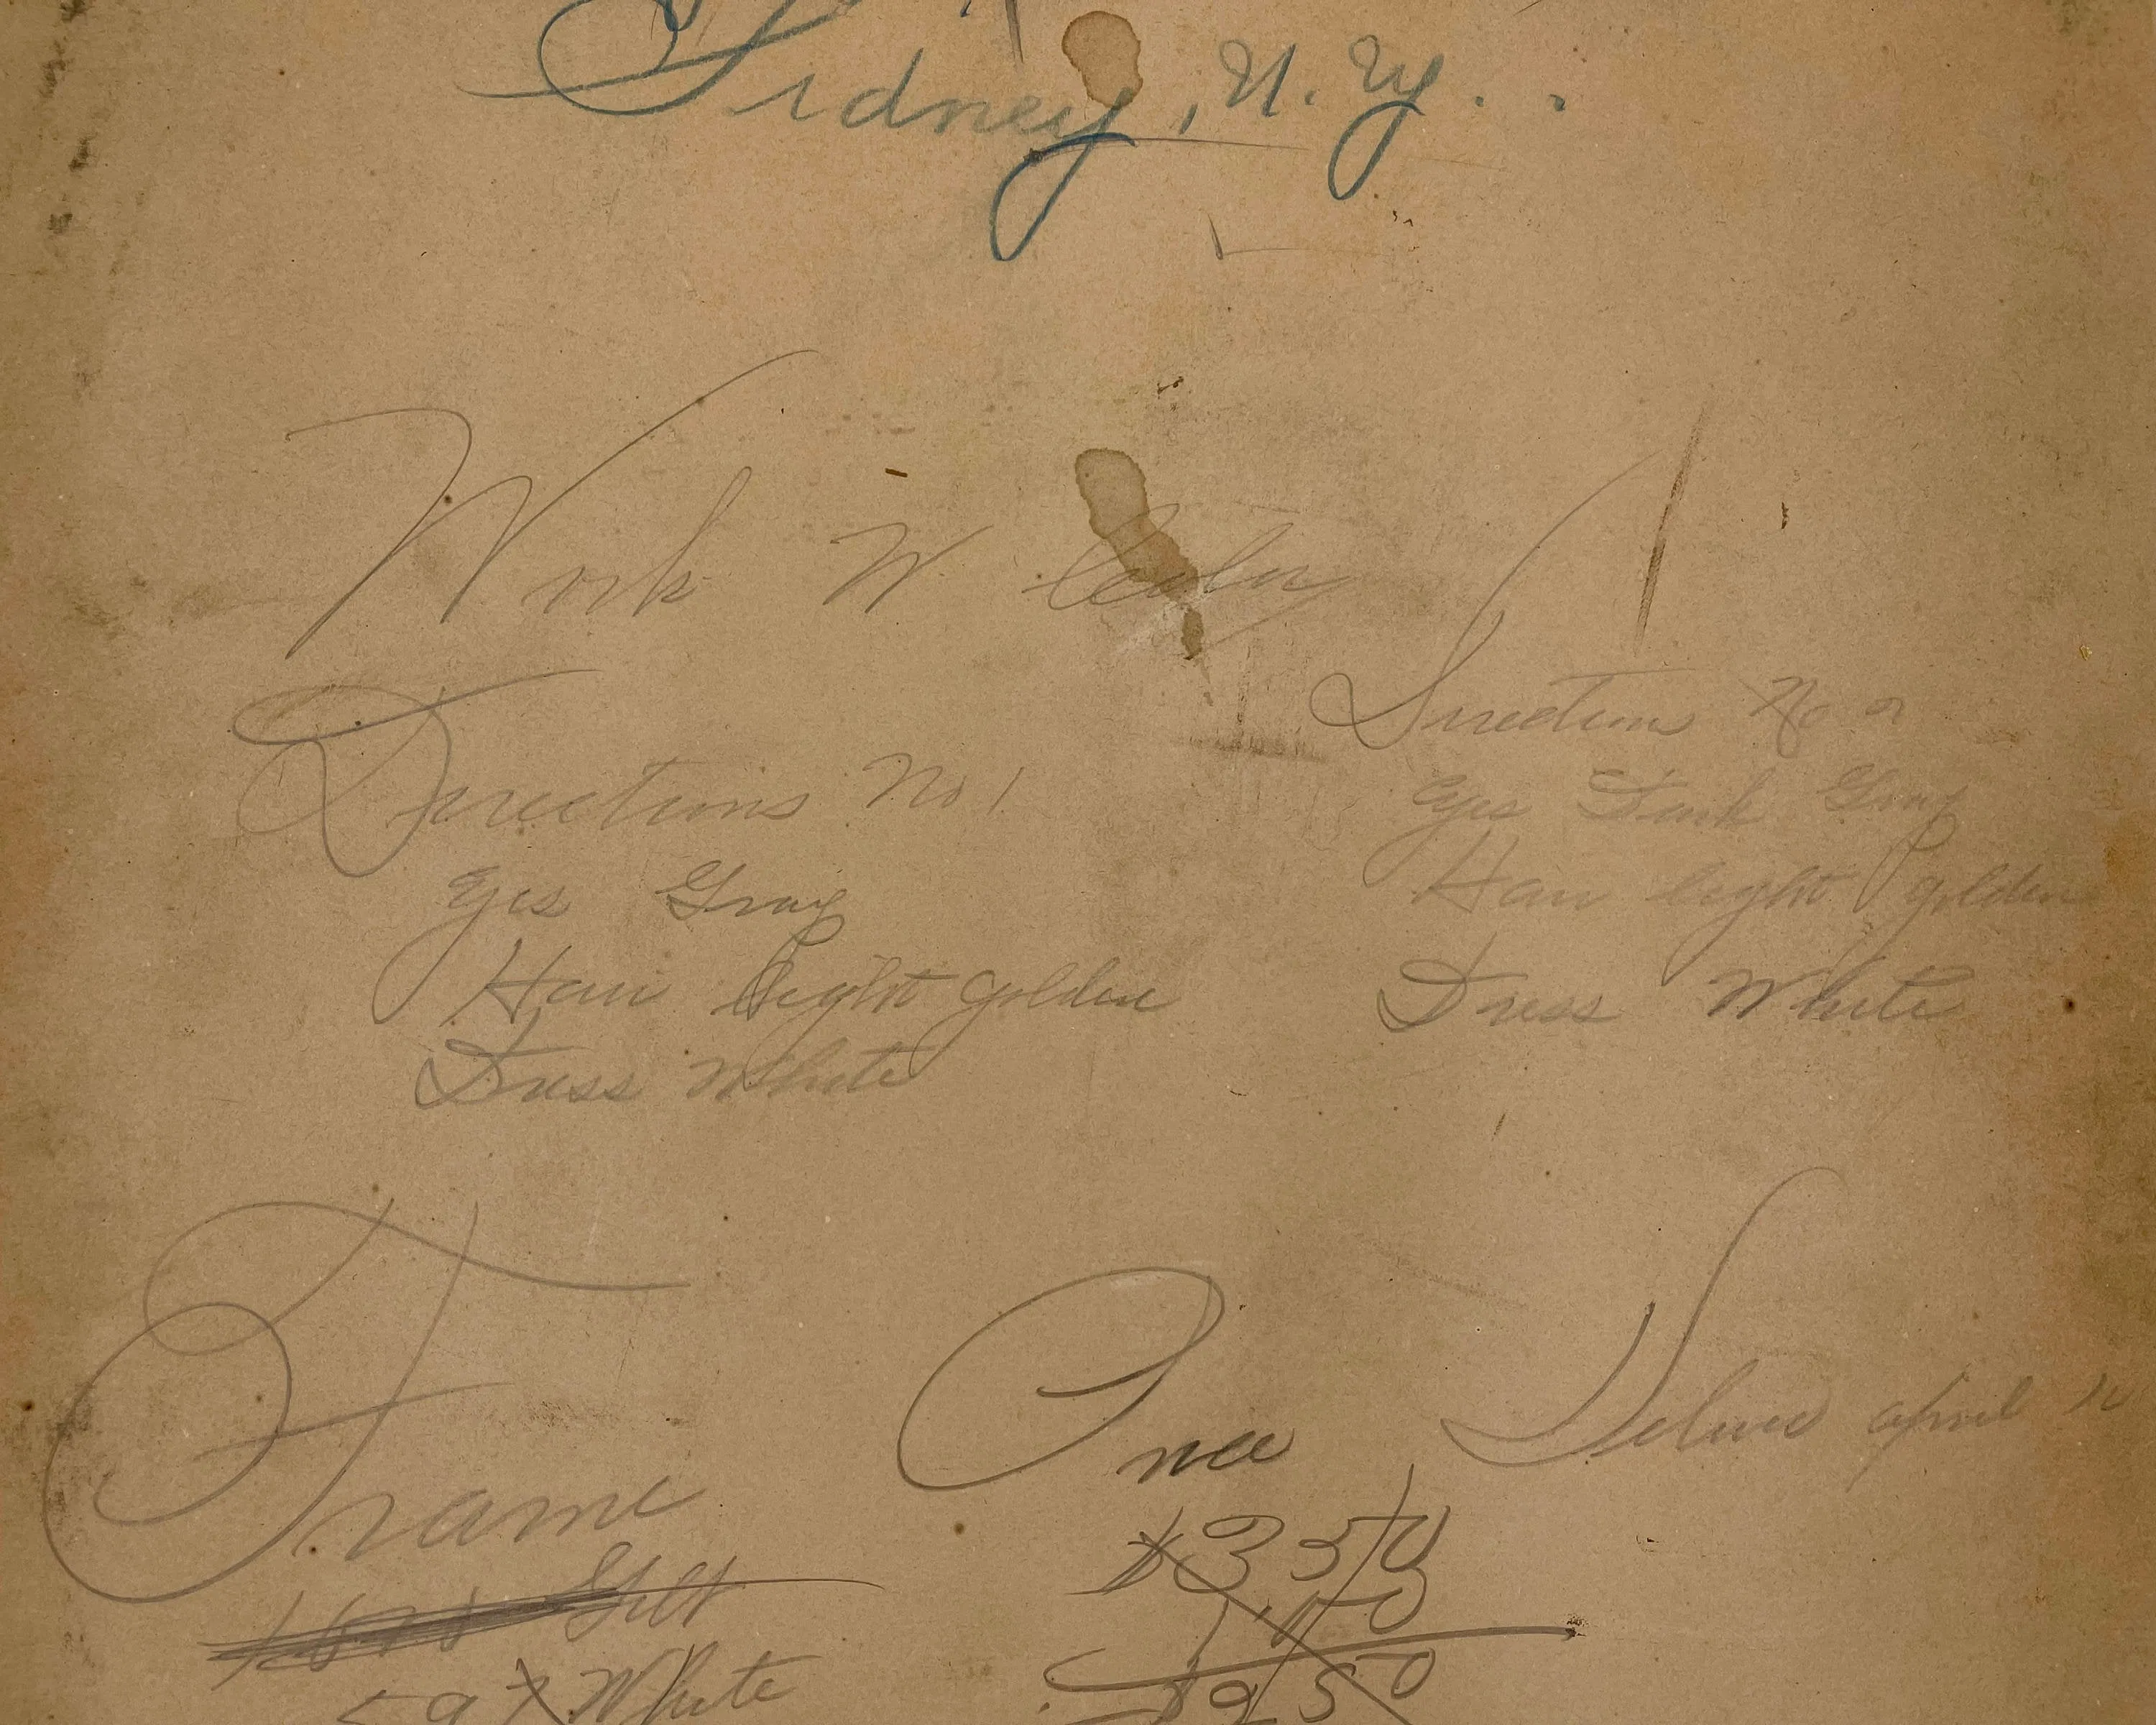 Sidney, N. Y.
Work W Color
Directions No 1
Eyes Gray
Hair light golden
Dress White
Directions No 2
Eyes Dark Gray
Hair light golden
Dress White
Frame
Gilt
White
Price
$3 50
Deliver april